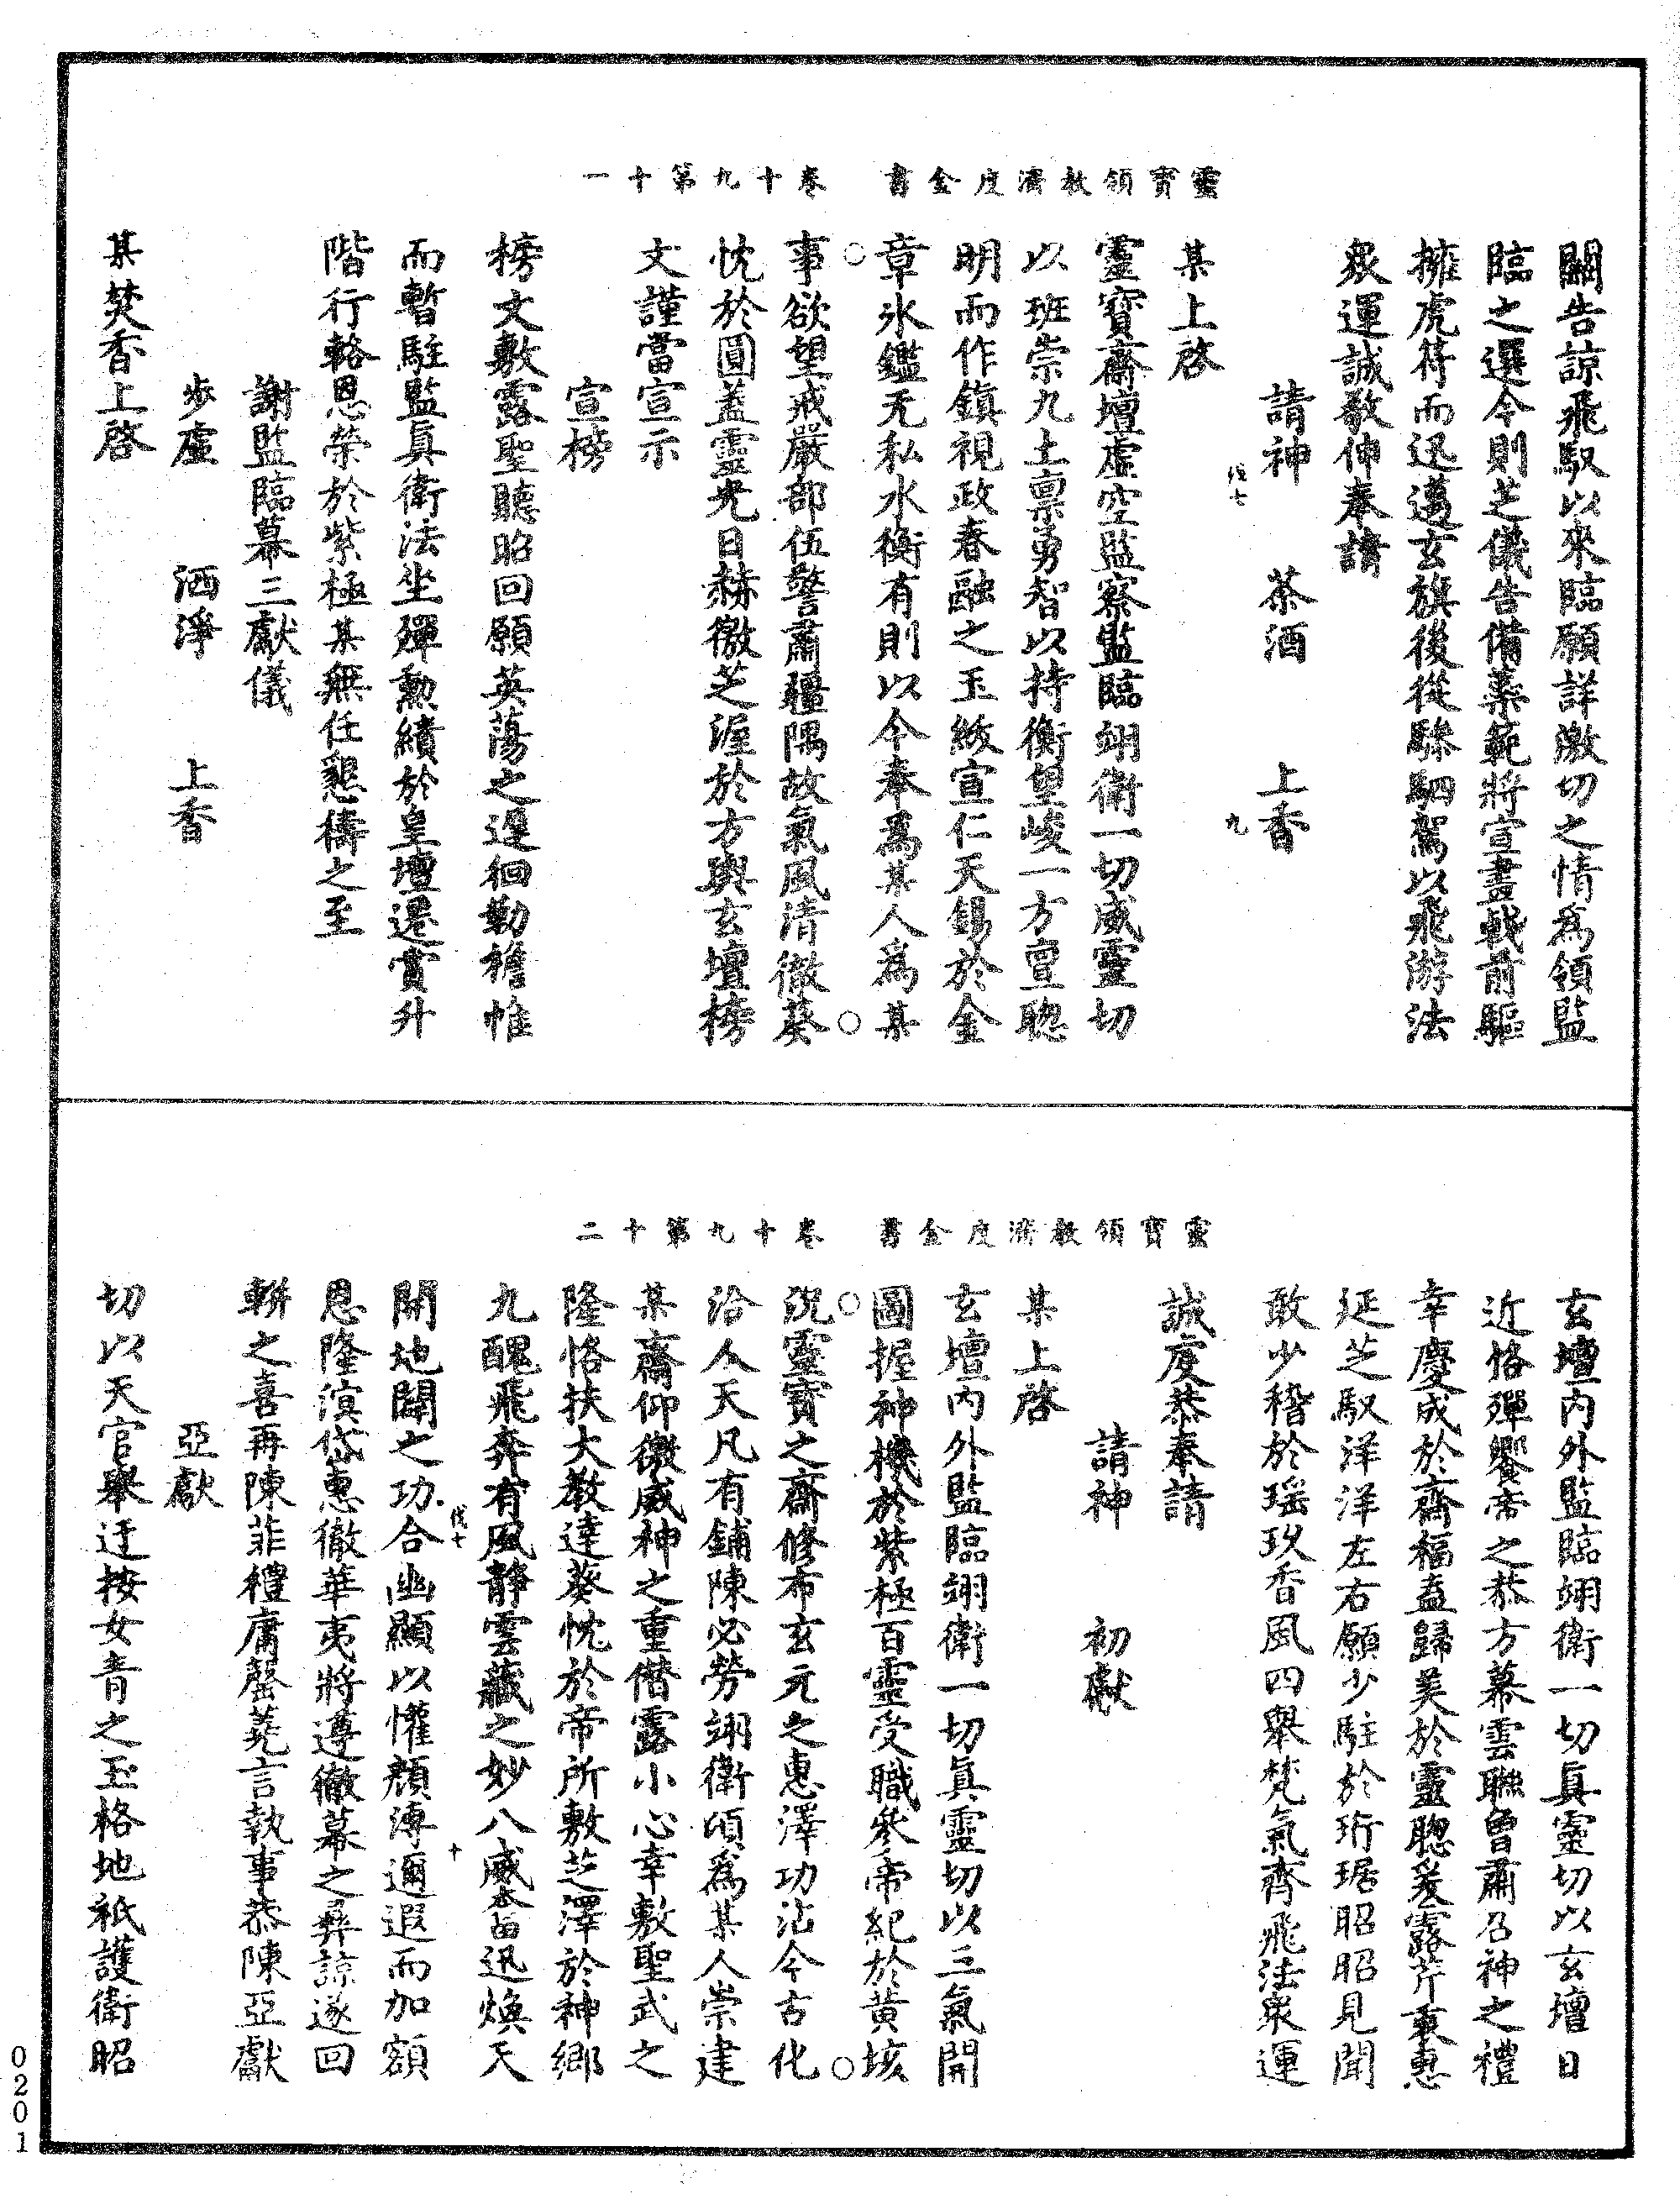 靈寶領教濟度金書　卷十九第十一
關告諒飛馭以來臨願詳激切之情為領監
臨之選今則芝儀告備蘂範將宣畫戟前驅
擁虎符而迅邁玄旗後從驂駟駕以飛游法
衆運誠敬伸奉請
請神　茶酒　上香
九
某上啓
靈寶齋壇虛空監察監臨翊衛一切威靈切
以班崇九土禀勇智以持衡望峻一方亶聦
明而作鎮視政春融之玉綬宣仁天錫於金
章氷鑑无私水衡有則以今奉爲某人爲某
事欲望戒嚴部伍警肅疆隅故氣風清徹葵
忱於圓蓋靈光日赫徼芝渥於方輿玄壇榜
文謹當宣示
宣榜
榜文敷露聖聽昭回願英蕩之遲徊勤襜帷
而暫駐監真衛法坐殫勲績於皇壇遷賞升
階行輅恩榮於紫極某無任懇禱之至
謝監臨幕三獻儀
步虛　洒淨　上香
某焚香上啓
靈寶領教濟度金書　卷十九第十二
玄壇内外監臨翊衛一切真靈切以玄壇日
近恪殫饗帝之恭方幕雲聯曾肅召神之禮
幸慶成於齋福盍歸美於靈聦爰露芹衷惠
延芝馭洋洋左右願少駐於珩琚昭昭見聞
敢少稽於瑶玖香風四舉梵氣齊飛法衆運
誠虔恭奉請
請神　初獻
某上啓
玄壇内外監臨翊衛一切真靈切以三氣開
圖握神機於紫極百靈受職叅帝紀於黄垓
況靈寶之齋修布玄元之惠澤功沾今古化
洽人天凡有鋪陳必勞翊衛頃爲某人崇建
某齋仰徼威神之重僭露小心幸敷聖武之
隆恪扶大教達葵忱於帝所敷芝澤於神鄉
九醜飛奔有風静雲藏之妙八威奮迅煥天
開地闢之功合幽顯以懽顏溥邇遐而加額
十
恩隆溟岱惠徹華夷將遵徹幕之彞諒遂回
軿之喜再陳菲禮庸罄蕘言執事恭陳亞獻
亞獻
切以天官舉迓按女青之玉格地祇護衛昭
0201